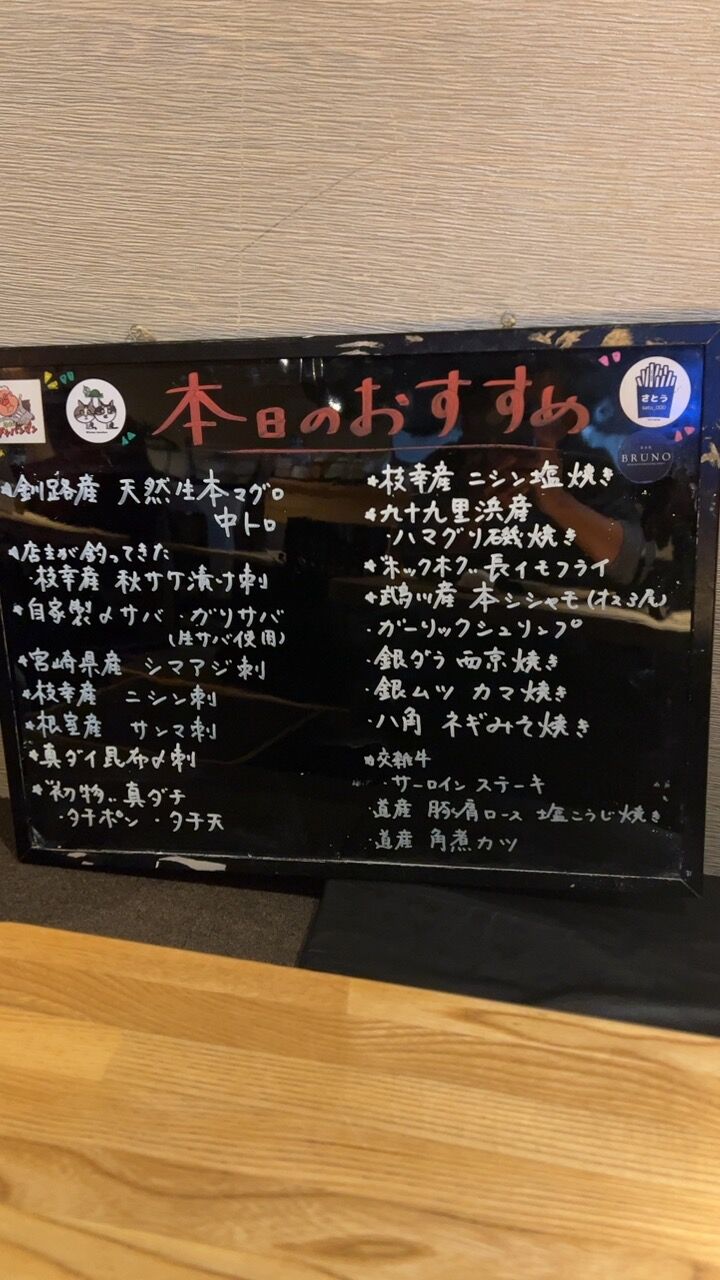 本日のおすすめ
さとう
BAR
BRUNO
*釧路産 天然生本マグロ
中トロ
*店主が釣ってきた
・枝幸産 秋サケ漬け刺
*自家製〆サバ・ガリサバ
(生サバ使用)
*宮崎県産 シマアジ刺
*枝幸産 ニシン刺
*根室産 サンマ刺
*真ダイ昆布〆刺
*"初物"真ダチ
・タチポン ・タチ天
*枝幸産 ニシン塩焼き
*九十九里浜産
・ハマグリ磯焼き
*ホックホク 長イモフライ
*鵡川産 本シシャモ(オスろん)
・ガーリックシュリンプ
・銀ダラ 西京焼き
・銀ムツ カマ焼き
・八角 ネギみそ焼き
*交雑牛
・サーロインステーキ
・道産 豚肩ロース 塩こうじ焼き
・道産 角煮カツ